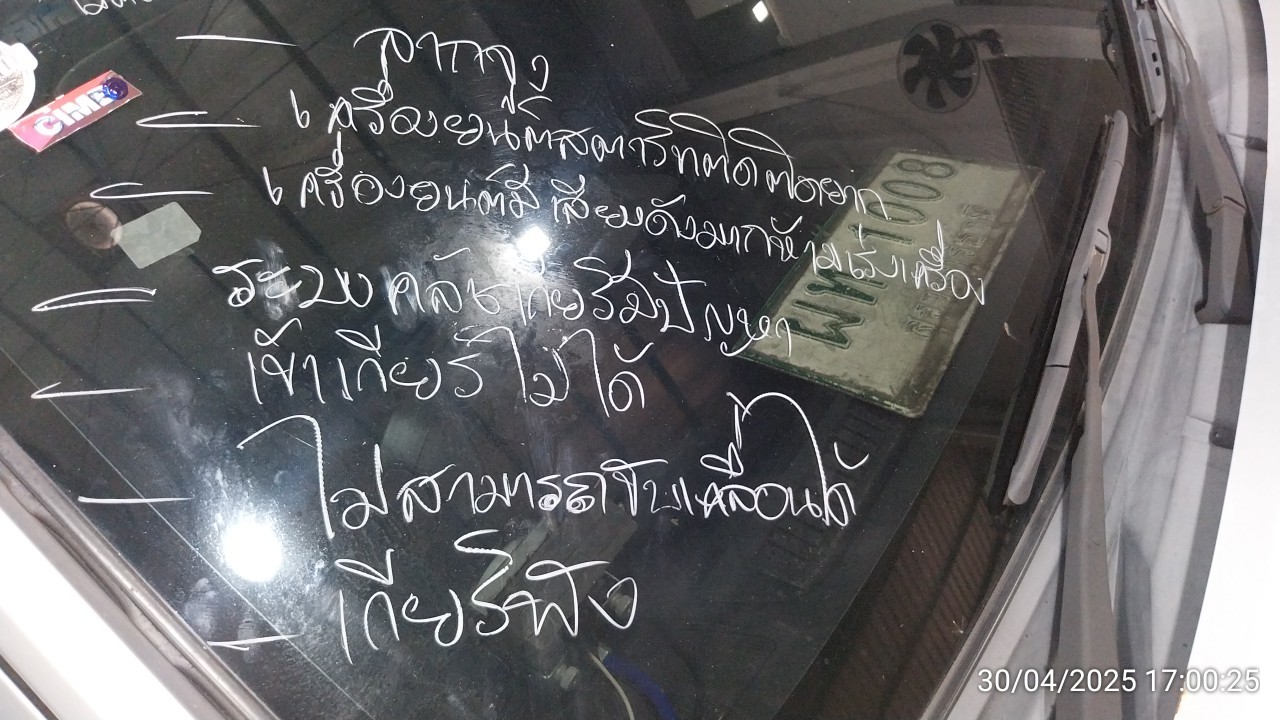 – ลากจูง
– เครื่องยนต์สตาร์ทติดติดยาก
– เครื่องยนต์มีเสียงดังมากห้ามเร่งเครื่อง
– ระบบคลัชเกียร์มีปัญหา
– เข้าเกียร์ไม่ได้
– ไม่สามารถขับเคลื่อนได้
– เกียร์พัง
CIMB
1008
30/04/2025 17:00:25